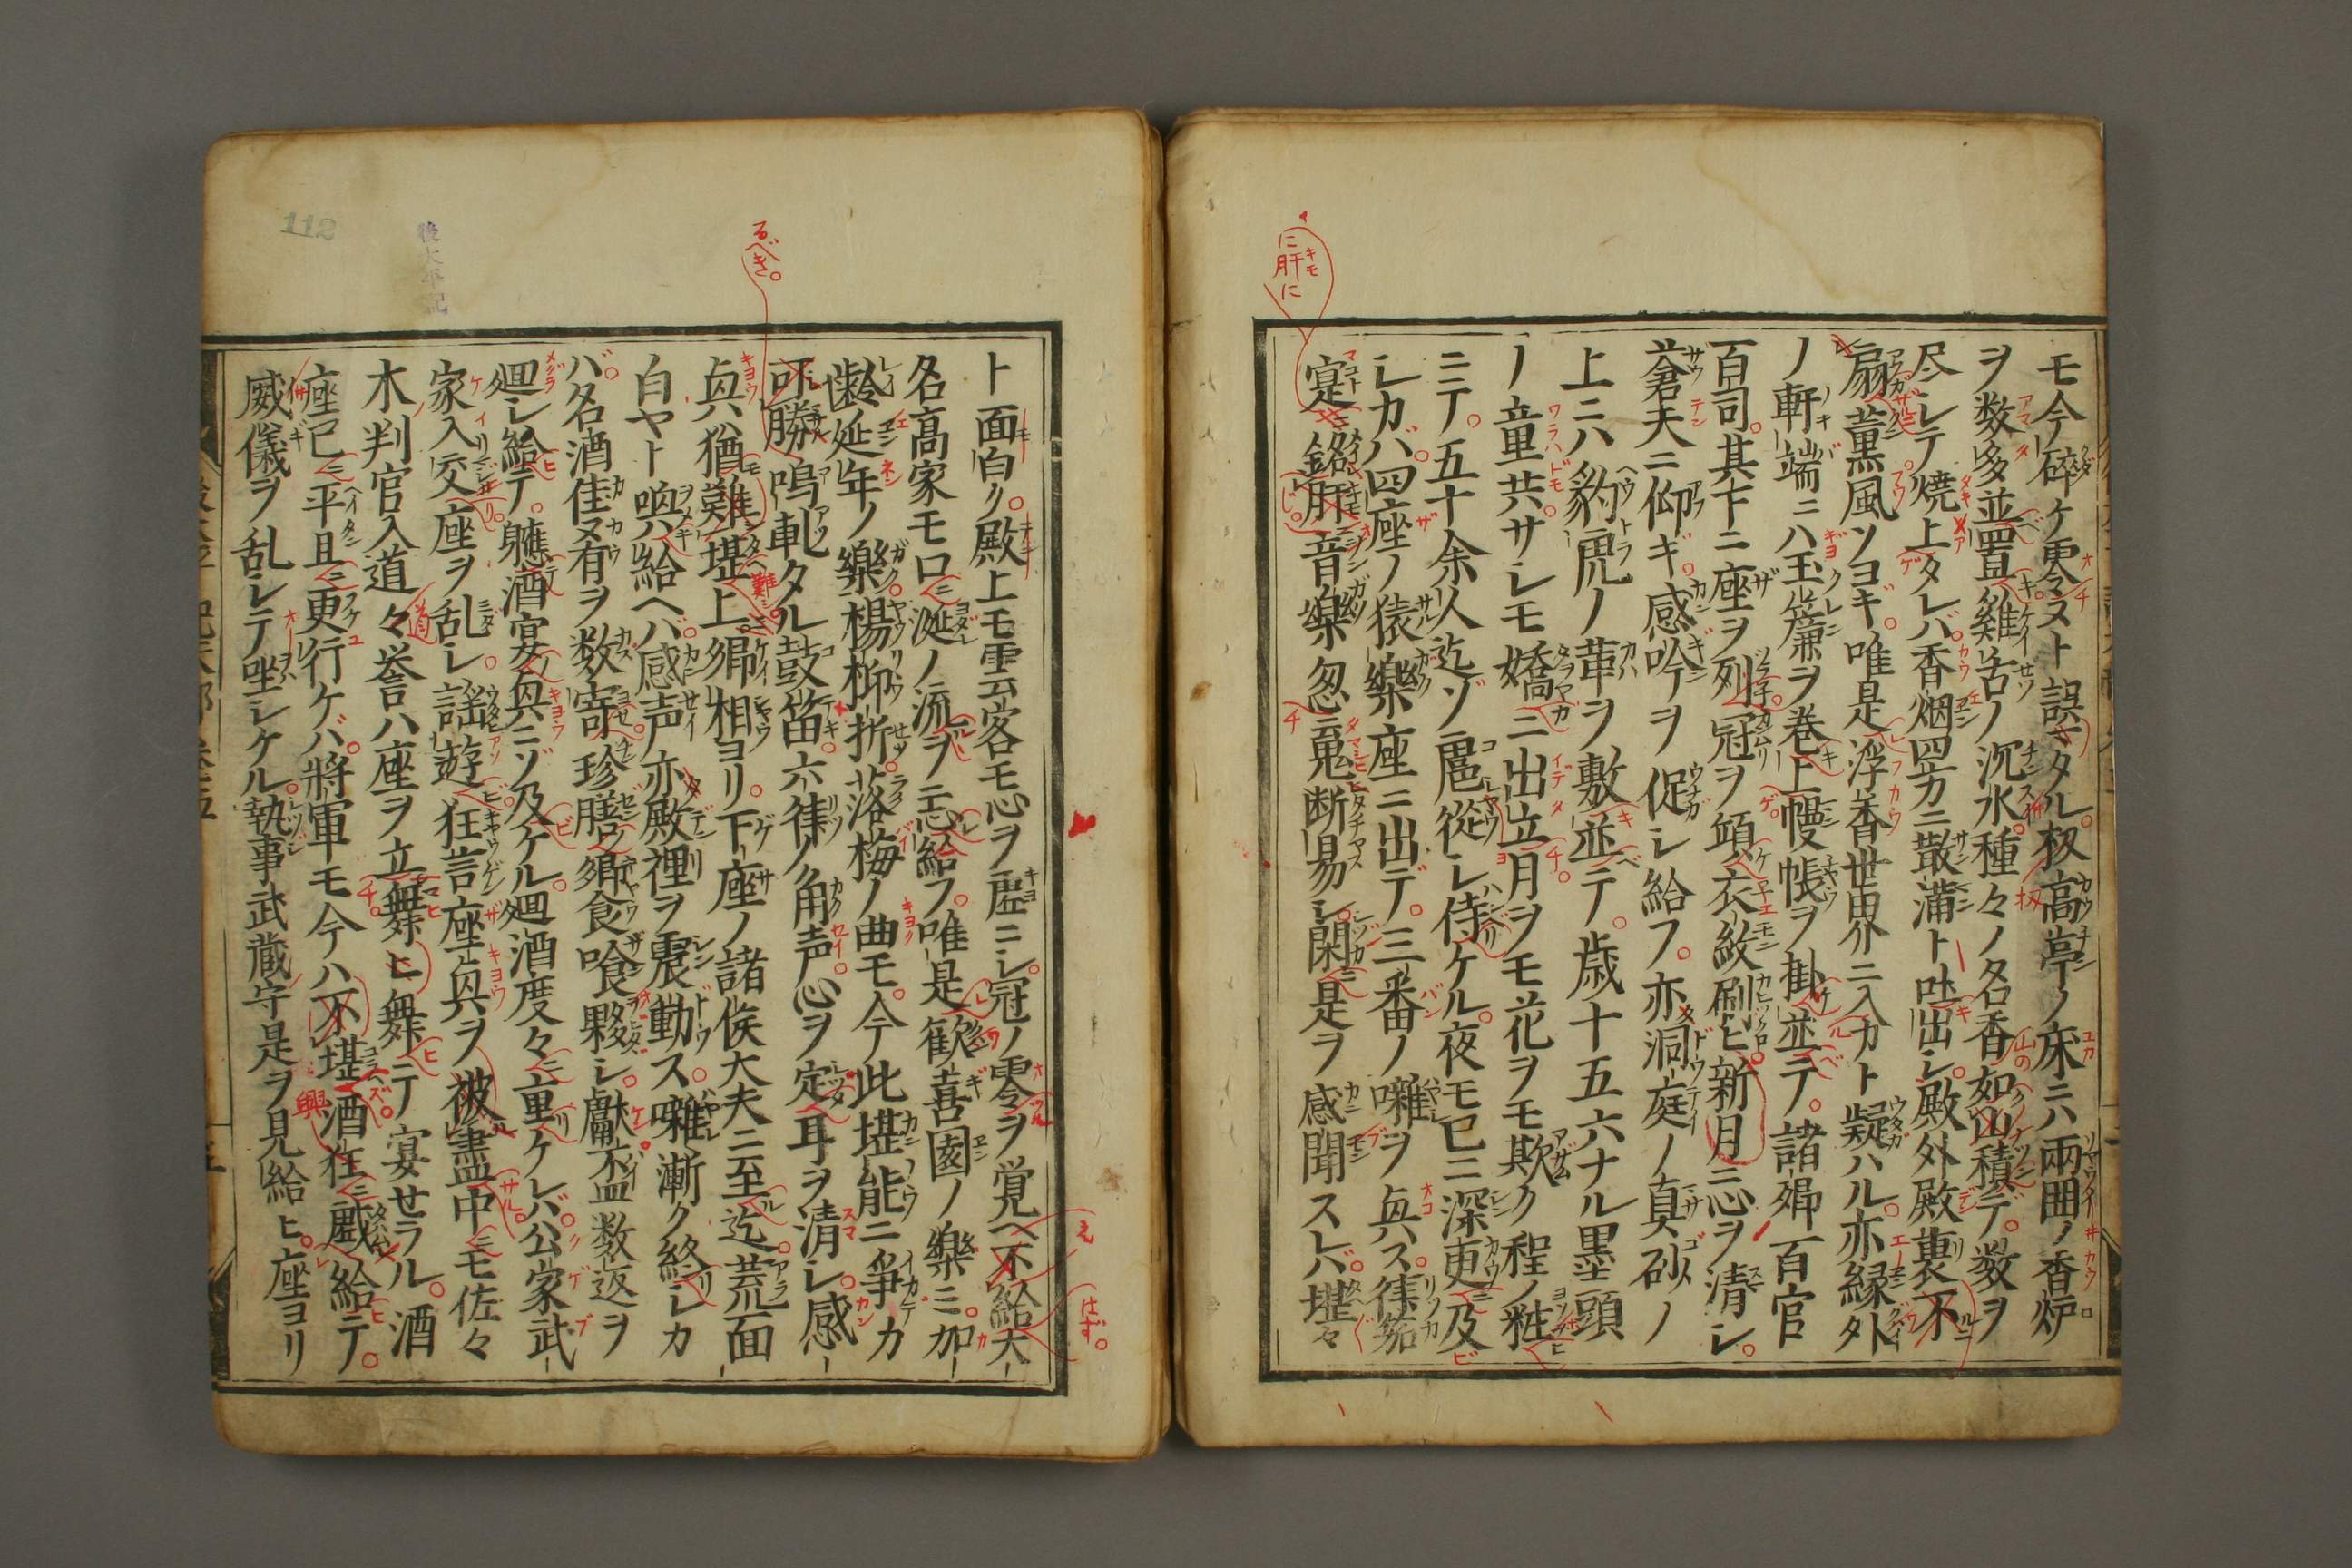 モ今碎ケ零スト誤マタル扱高亭ノ床ニハ兩囲ノ香炉
ヲ数多並置雞舌ノ沉水種々ノ名香如山積デ数ヲ
尽シテ焼上タレバ香烟四方ニ散滿ト吐出シ殿外殿裏不
扇薫風ソヨギ唯是浮香世界ニ入カト疑ハル亦縁外
ノ軒端ニハ玉簾ヲ巻上幔帳ヲ掛並テ諸卿百官
百司其下ニ座ヲ列冠ヲ傾衣紋刷ヒ新月ニ心ヲ清シ
蒼天ニ仰ギ感吟ヲ促シ給フ亦洞庭ノ真砂ノ
上ニハ豹虎ノ革ヲ敷並テ歳十五六ナル墨頭
ノ童共サシモ嬌ニ出立月ヲモ花ヲモ欺ク程ノ粧
ニテ五十余人迄ゾ扈從シ侍ケル夜モ已ニ深更及
シカバ四座ノ猿樂座ニ出デ三番ノ囃ヲ興ス葎笳
寔ニ銘肝音樂忽ニ鬼断易シ閑ニ是ヲ感聞スレバ堪々
ト面白ク殿上モ雲客モ心ヲ虚ニシ冠ノ零ヲ覚ヘ不給大
名高家モ口ニ涎ノ流ヲ忘給フ唯是歓喜園ノ樂ニ加
齢延年ノ樂楊柳折落梅ノ曲モ今此堪能ニ爭カ
可勝鳴軋タル鼓笛六律ノ角声心ヲ定耳ヲ清シ感
興猶難堪上卿相ヨリ下座ノ諸侯大夫ニ至迄荒面
白ヤト喚給ヘバ感声亦殿裡ヲ震動ス囃漸ク終シカ
バ名酒佳肴ヲ数寄珍膳ヲ饗食喰夥シ獻盃数返ヲ
廻シ給テ軈酒宴興ニゾ及ケル廻酒度々ニ重ケレバ公家武
家入交座ヲ乱シ謡遊狂言座興ヲ被盡中ニモ佐々
木判官入道々誉ハ座ヲ立舞ヒ舞テ宴セラル酒
座已ニ平且ニ更行ケバ將軍モ今ハ不堪酒狂ニ戯給テ
威儀ヲ乱シテ坐シケル執事武蔵守是ヲ見給ヒ座ヨリ
112
後太平記
るべき。
に肝に
キモ
はず。